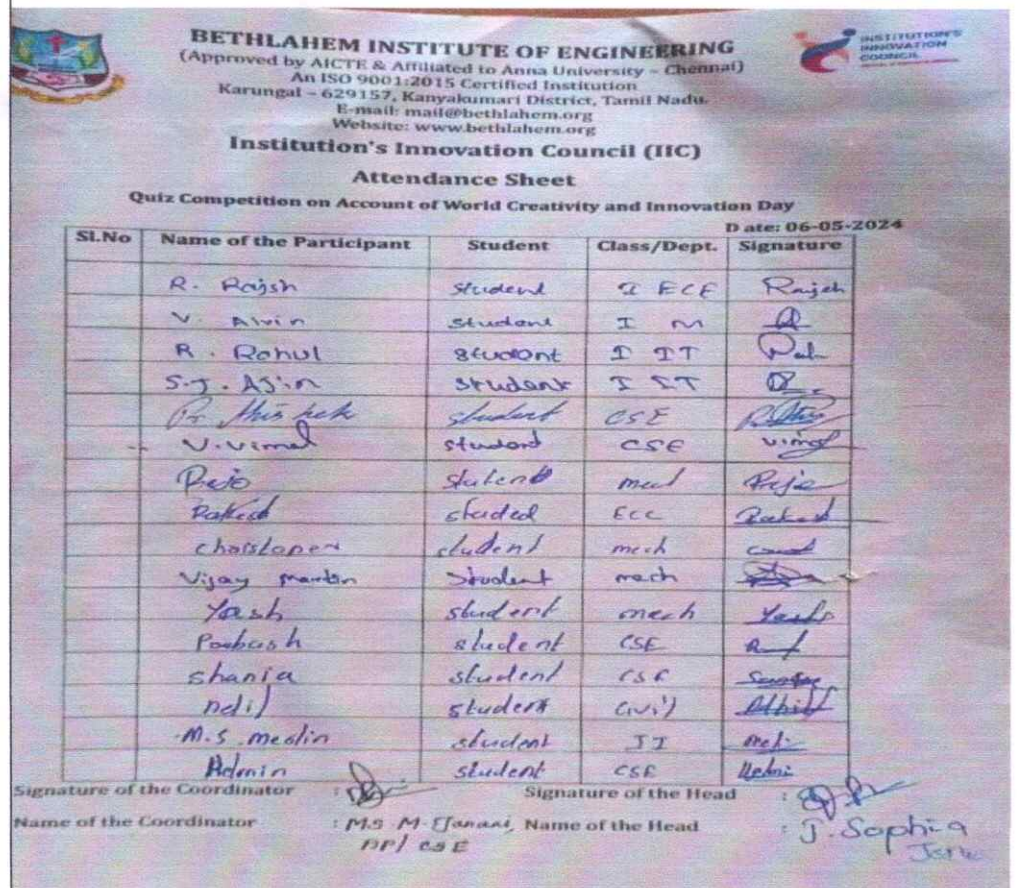 BETHLAHEM INSTITUTE OF ENGINEERING
(Approved by AICTE & Affiliated to Anna University – Chennai)
An ISO 9001:2015 Certified Institution
Karungal – 629157, Kanyakumari District, Tamil Nadu.
E-mail: mail@bethlahem.org
Website: www.bethlahem.org
INSTITUTION'S
INNOVATION
COUNCIL
Institution's Innovation Council (IIC)
Attendance Sheet
Quiz Competition on Account of World Creativity and Innovation Day
Date: 06-05-2024
Sl.No Name of the Participant Student Class/Dept. Signature
R. Rajsh student I ECE Rajsh
V. Alvin student I M
R. Rahul student I IT
S.J. Ajin student I IT
student CSE
V. Vimal student CSE Vimal
Rejo student mech Rejo
student ECE
student mech
Vijay student mech
Yash student mech Yash
student CSE
shania student CSE
student civil
M.S. student
student CSE
Signature of the Coordinator : Signature of the Head :
Name of the Coordinator : Ms M. Name of the Head : J. Sophia
AP/ CSE